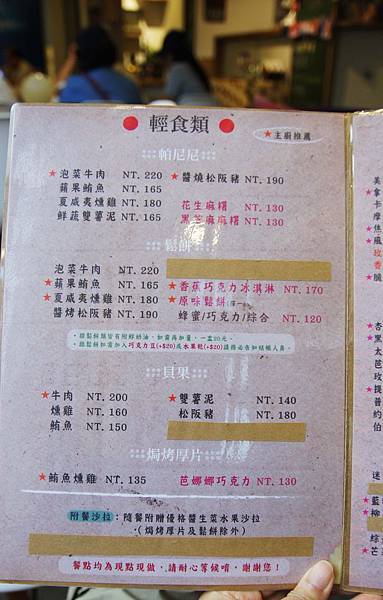 ● 輕食類 ●
★主廚推薦
帕尼尼
★泡菜牛肉 NT. 220
蘋果鮪魚 NT. 165
夏威夷燻雞 NT. 180
鮮蔬雙薯泥 NT. 165
★醬燒松阪豬 NT. 190
花生麻糬 NT. 130
黑芝麻麻糬 NT. 130
鬆餅
泡菜牛肉 NT. 220
★蘋果鮪魚 NT. 165
★夏威夷燻雞 NT. 180
醬烤松阪豬 NT. 190
★香蕉巧克力冰淇淋 NT. 170
★原味鬆餅
蜂蜜/巧克力/綜合 NT. 120
•甜鬆餅類皆有附鮮奶油,如需再加量,一盒20元。
•甜鬆餅如需加入巧克力豆(+$20)或水果乾(+$20)請務必告知結帳人員。
貝果
★牛肉 NT. 200
燻雞 NT. 160
鮪魚 NT. 150
★雙薯泥 NT. 140
松阪豬 NT. 180
焗烤厚片
★鮪魚燻雞 NT. 135
芭娜娜巧克力 NT. 130
附餐沙拉:隨餐附贈優格醬生菜水果沙拉
(焗烤厚片及鬆餅除外)
餐點均為現點現做,請耐心等候唷,謝謝您!